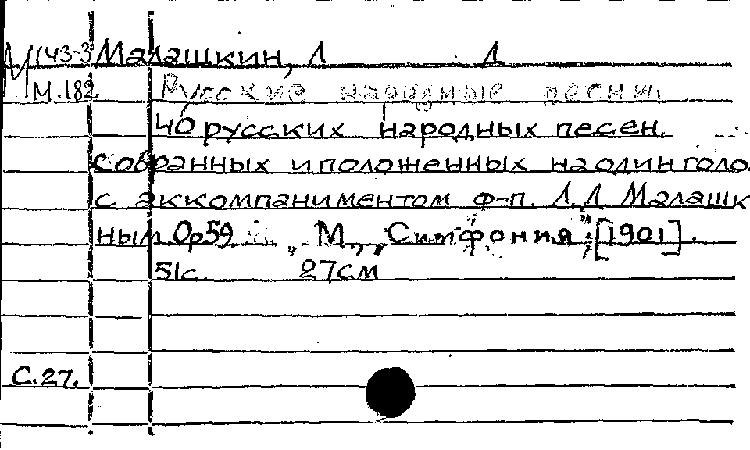 М 143-3 Малашкин, Л Л
М.182 Русские народные песни.
40 русских народных песен,
собранных и положенных на один голо
с аккомпаниментом ф-п. Л.Л Малашк
ным. Ор59 „ М., „Симфония", [1901].
51с. 27см
С.27.